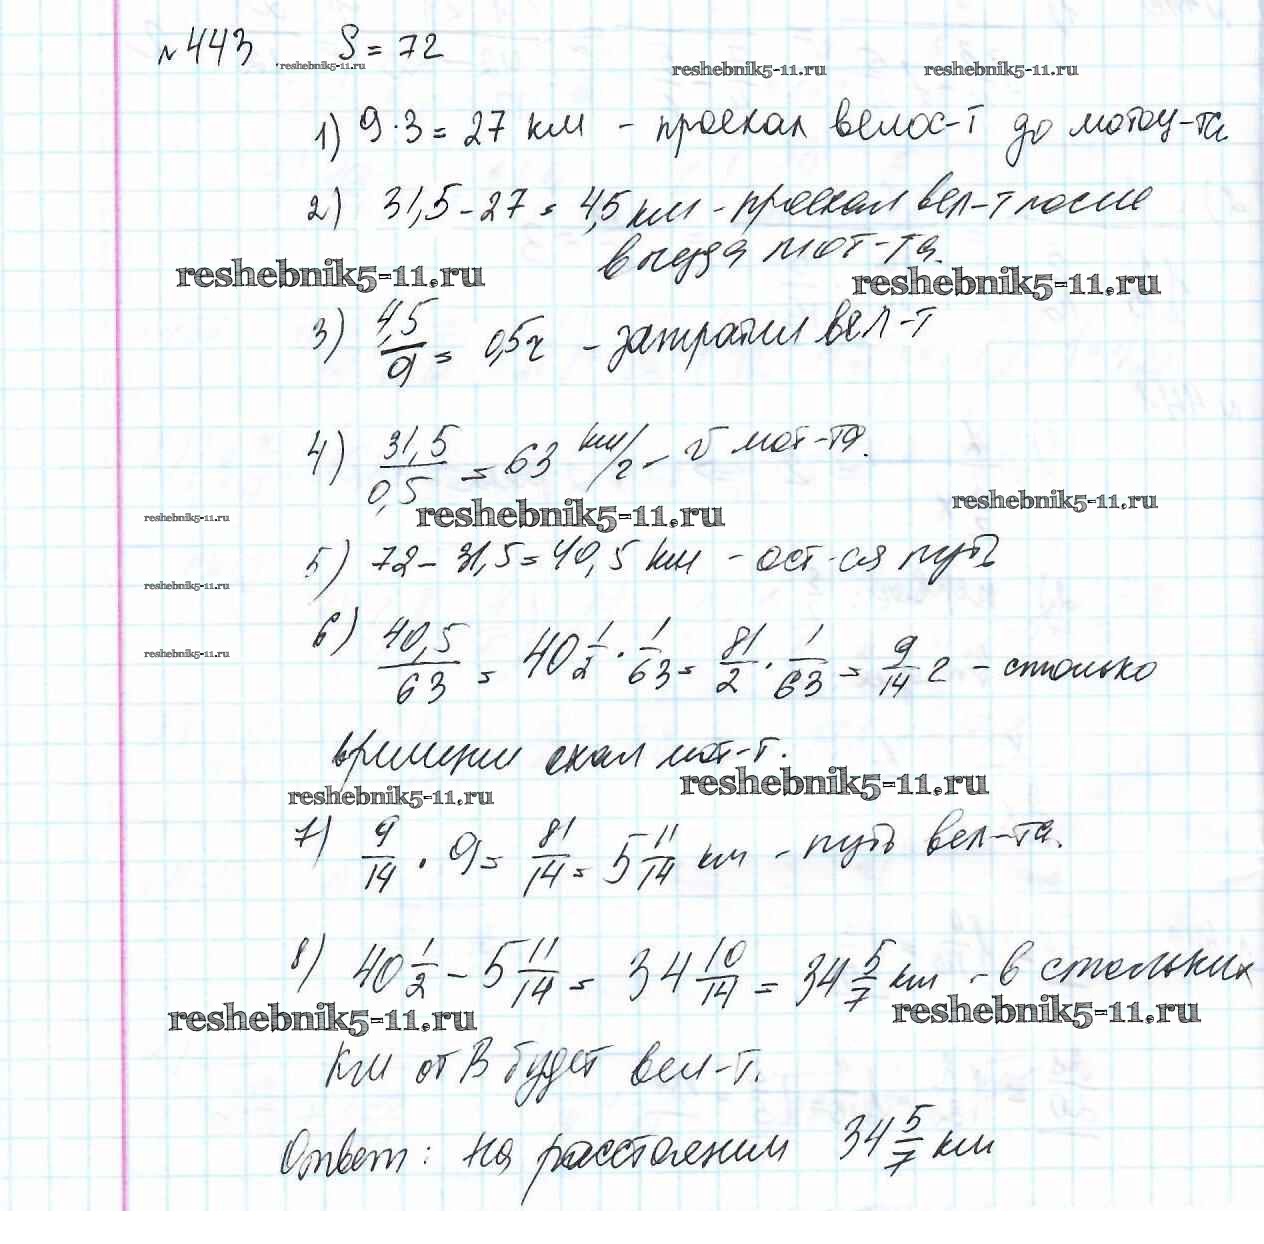 №443 S = 72
reshebnik5-11.ru reshebnik5-11.ru reshebnik5-11.ru
1) 9·3 = 27 км - проехал велос-т до мотоц-та
2) 31,5 - 27 = 4,5 км - проехал вел-т после
выезда мот-та.
reshebnik5-11.ru reshebnik5-11.ru
3) 4,5/9 = 0,5ч - затратил вел-т
4) 31,5/0,5 = 63 км/ч - v мот-та.
reshebnik5-11.ru reshebnik5-11.ru reshebnik5-11.ru
5) 72 - 31,5 = 40,5 км - ост-ся путь
reshebnik5-11.ru
6) 40,5/63 = 40 1/2 · 1/63 = 81/2 · 1/63 = 9/14 ч - столько
reshebnik5-11.ru
времени ехал мот-т.
reshebnik5-11.ru reshebnik5-11.ru
7) 9/14 · 9 = 81/14 = 5 11/14 км - путь вел-та.
8) 40 1/2 - 5 11/14 = 34 10/14 = 34 5/7 км - в стольких
reshebnik5-11.ru reshebnik5-11.ru
км от В будет вел-т.
Ответ: на расстоянии 34 5/7 км